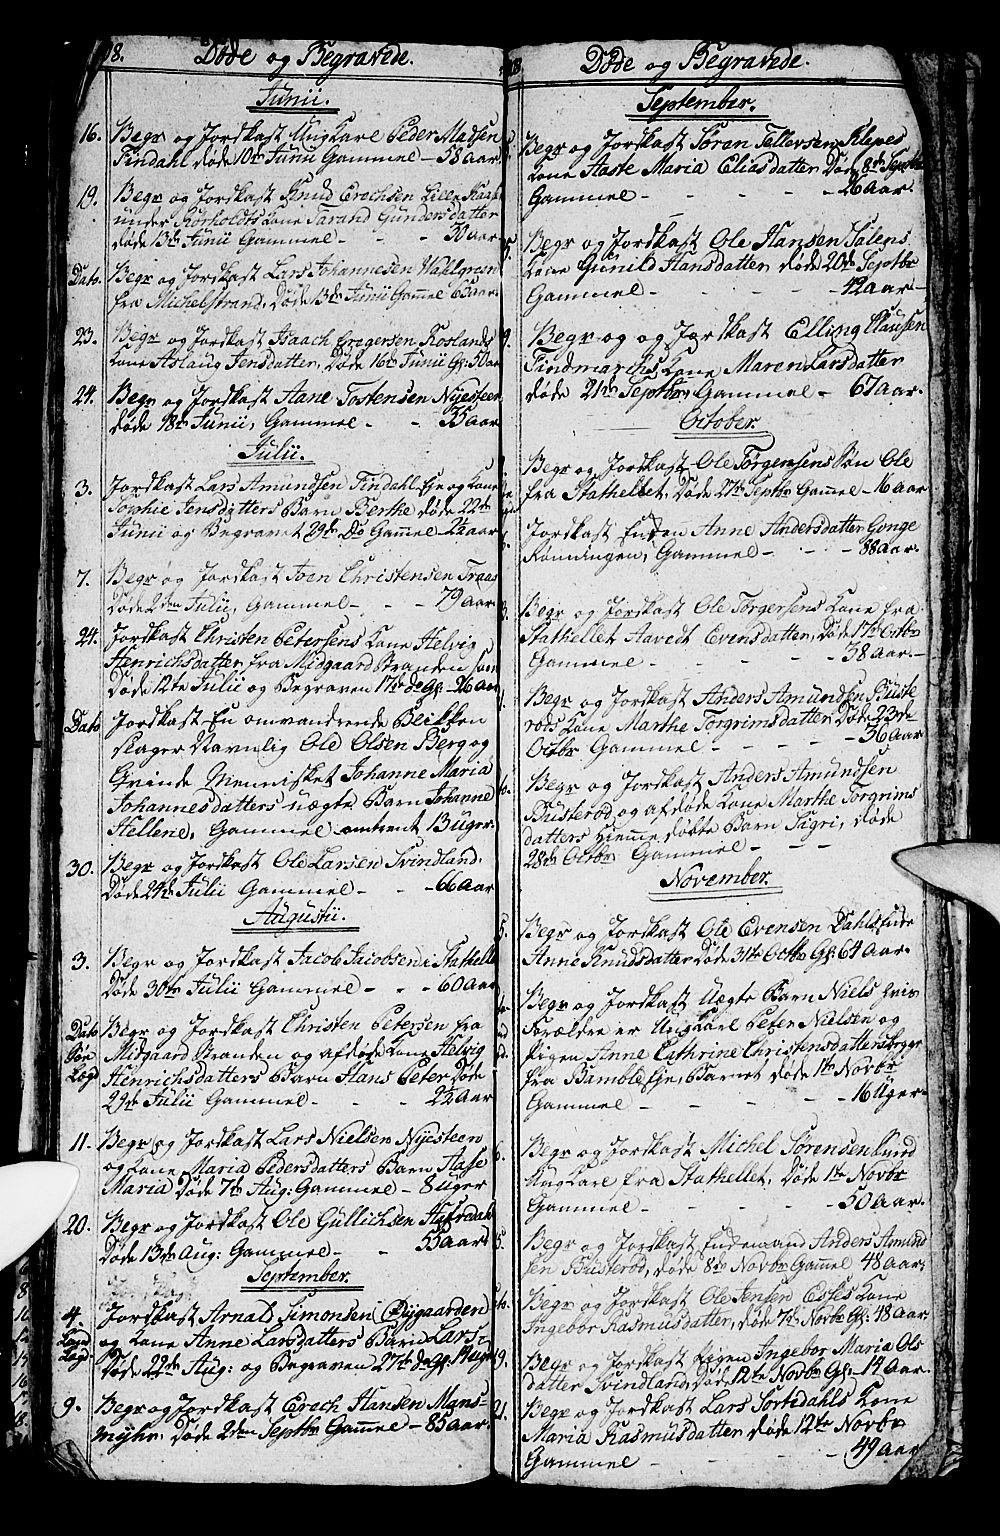 8. Døde og Begravede.
Junii.
16. Begr og Jordkast Ungkarl Peder Madsen
Findahl døde 10de Junii Gammel — 58 Aar
19. Begr og Jordkast Knud Erechsen Lille Haaf
under Rørholdts Kone Tarand Gundersdatter
døde 13de Junii Gammel — 50 Aar
Dato. Begr og Jordkast Lars Johannesen Wahlgren
fra Michelstrand, Døde 13de Junii Gamel 65 Aar.
23. Begr og Jordkast Isaach Gregersen Roslands
Kone Aslaug Jensdatter, Døde 16de Junii Gl: 50 Aar
24. Begr og Jordkast Aane Tostensen Nyesteen
døde 18de Junii, Gammel — 35 Aar
Julii.
3. Jordkast Lars Amundsen Findahl Eje og Kone
Sophie Jensdatters Barn Berthe døde 22de
Junii og Begravet 29de Do Gamel — 2½ Aar
7. Begr og Jordkast Joen Christensen Traas
Døde 2den Julii, Gammel — 79 Aar
24. Jordkast Christen Petersens Kone Helvig
Henrichsdatter fra Midgaard Stranden som
Døde 12te Julii og Begraven 17de do Gl: 26 Aar
Dato Jordkast En omvandrende Blikken
slager Navnlig Ole Olsen Berg og
Qvinde Mennisket Johanne Maria
Johannesdatters uægte Barn Johanne
Hellene, Gammel omtrent 13 Uger.
30. Begr og Jordkast Ole Larsen Svindland.
Døde 24de Julii Gammel — 66 Aar
Augustii.
3. Begr og Jordkast Jacob Jacobsen i Stathelle
Døde 30te Julii Gammel — 60 Aar
Dato Begr og Jordkast Christen Petersen fra
Midgaard Stranden og afdøde Kone Helvig
Henrichsdatters Barn Hans Peter Døde
29de Julii Gammel — 2½ Aar
11. Begr og Jordkast Lars Nielsen Nyesteen
og Kone Maria Pedersdatters Barn Aase
Maria Døde 7de Aug: Gammel — 8 Uger
20. Begr og Jordkast Ole Gullichsen Hafredal
Døde 13de Aug: Gammel — 55 Aar
September.
4. Jordkast Arnal Simonsen (Øygaarden)
og Kone Anne Larsdatters Barn Lars
Døde 22de Aug: og Begraven 27de do Gl: 14 Uger
9. Begr og Jordkast Erech Hansen Mans-
myhr. Døde 2den Septbr Gamel — 85 Aar
Døde og Begravede.
September.
Begr og Jordkast Søren Tellevsen Klepes
Kone Aaste Maria Eliasdatter Døde 8de Septbr
Gammel — 26 Aar
Begr og Jordkast Ole Hansen
Kone Gunild Hansdatter døde 20de Septbr
Gammel — 42 Aar
9. Begr og Jordkast Elling Clausen
Findmarchs Kone Maren Larsdatter
døde 21de Septbr Gammel — 67 Aar.
October.
Begr og Jordkast Ole Torgersens Søn Ole
fra Stathellet, Døde 27de Septbr Gamel — 16 Aar
Jordkast Enken Anne Andersdatter Gonge
Rønningen, Gammel — 88 Aar.
3. Begr og Jordkast Ole Torgersens Kone fra
Stathellet Aavedt Evensdatter, Døde 17de Octbr
Gammel — 38 Aar.
Begr og Jordkast Anders Amundsen Buste
røds Kone Marthe Torgrimsdatter Døde 23de
Octbr Gammel — 36 Aar
Begr og Jordkast Anders Amundsen
Busterød og afdøde Kone Marthe Torgrims
datters Hjemme døbte Barn Sigri, døde
28de Octbr Gammel —
November.
5. Begr og Jordkast Ole Evensen Dahls Enke
Anne Knudsdatter Døde 31te Octbr Gl: 64 Aar.
Begr og Jordkast Uægte Barn Niels hvis
Forældre er Ungkarl Peter Nielsen og
Pigen Anne Cathrine Christensdatter begge
fra Bamble Eje, Barnet døde 1te Novbr
Gammel — 16 Uger
6. Begr og Jordkast Michel Sørensen Lund
Ungkarl fra Stathellet, Døde 1te Novbr
Gammel — 50 Aar.
5. Begr og Jordkast Enkemand Anders Amund
sen Busterød, døde 8de Novbr Gamel 48 Aar
Begr og Jordkast Ole Jensen Eeses Kone
Ingebor Rasmusdatter, døde 7de Novbr Gl: 48 Aar.
19. Begr og Jordkast Pigen Ingebor Maria Ols
datter Svindland, døde 12te Novbr Gl: 14 Aar.
21. Begr og Jordkast Lars Sortedahls Kone
Maria Rasmusdatter, døde 12te Novbr
Gammel — 49 Aar